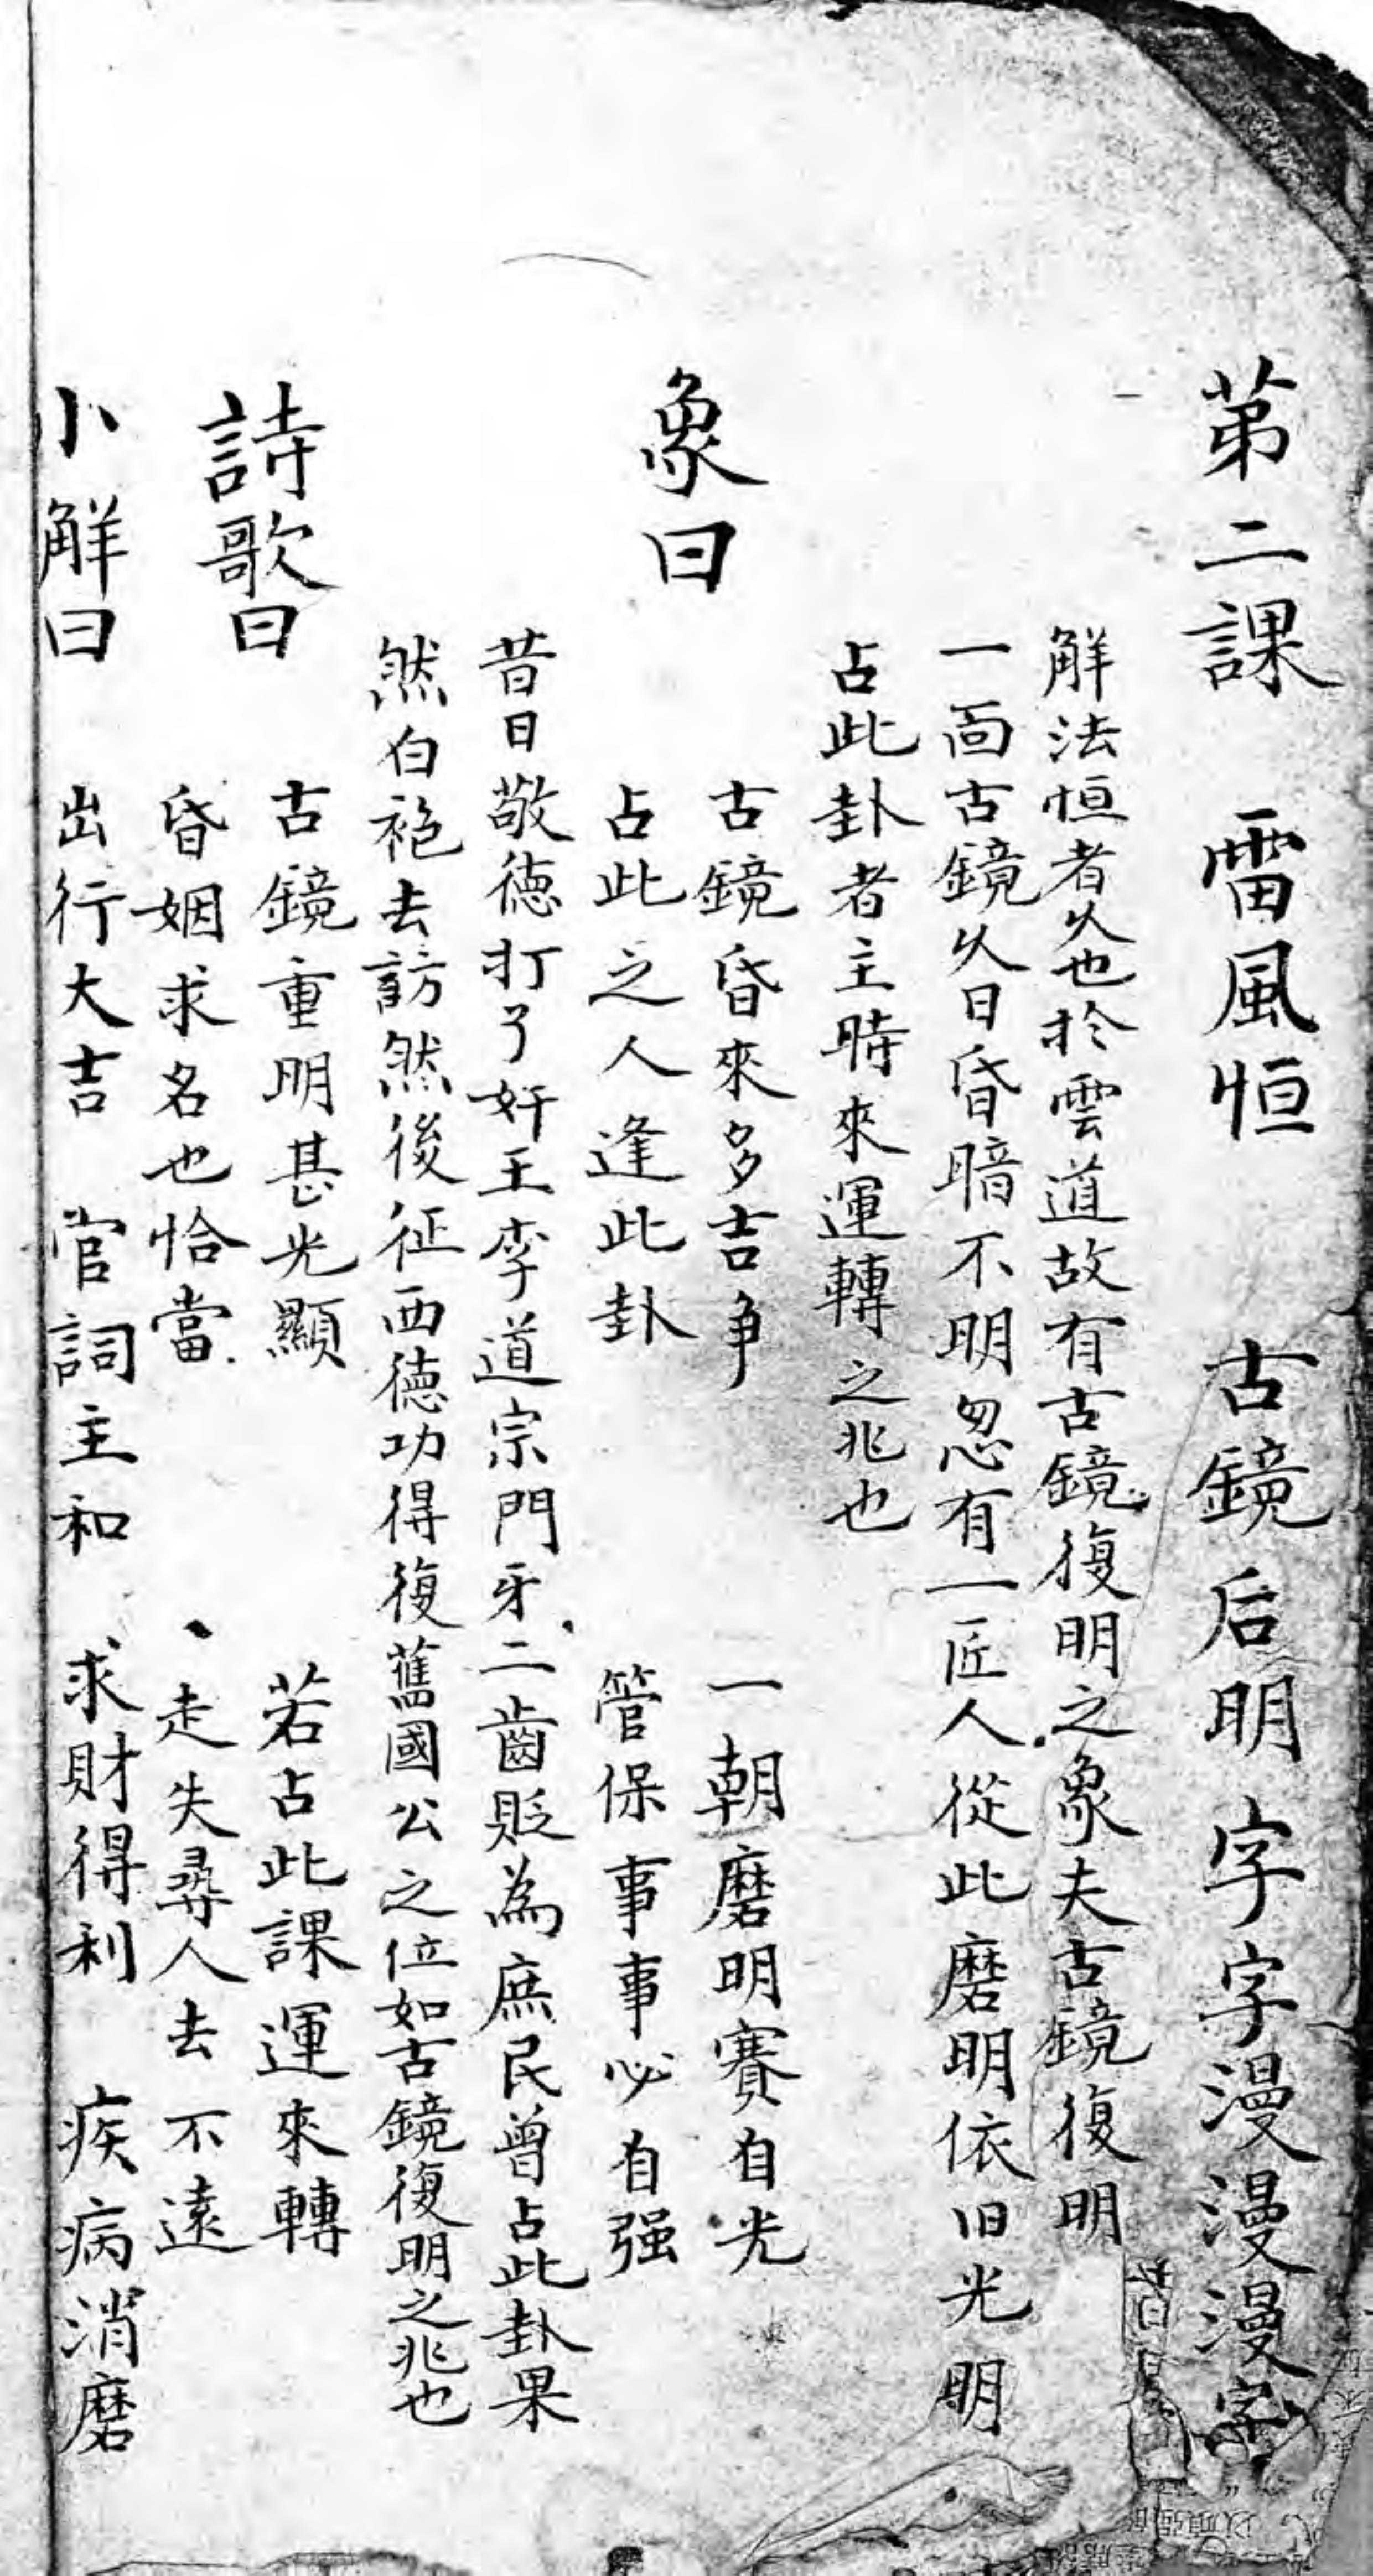 苐二課 雷風恒 古鏡后明 字字漫漫漫字
解法恒者久也扵雲道故有古鏡復明之象夫古鏡復明
一面古鏡久日昏暗不明忽有一匠人從此磨明依旧光明
占此卦者主時來運轉之兆也
象曰
古鏡昏來多吉爭 一朝磨明賽自光
占此之人逢此卦 管保事事必自强
昔日敬德打了奸王李道宗門牙二齒貶為庶民曾占此卦果
然白袍去訪然後征西德功得復舊國公之位如古鏡復明之兆也
詩歌曰
古鏡重明甚光顯 若占此課運來轉
昏姻求名也恰當 走失尋人去不遠
小觧曰 出行大吉 官詞主和 求財得利 疾病消磨